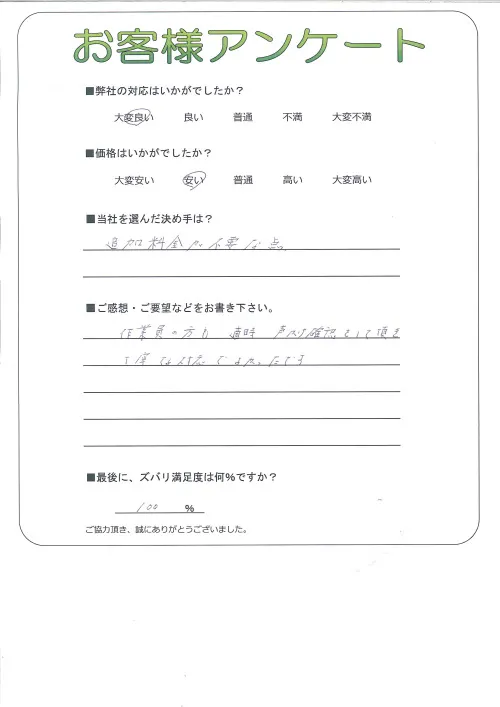 お客様アンケート
■弊社の対応はいかがでしたか？
大変良い 良い 普通 不満 大変不満
■価格はいかがでしたか？
大変安い 安い 普通 高い 大変高い
■当社を選んだ決め手は？
追加料金が不要な点
■ご感想・ご要望などをお書き下さい。
作業員の方も 適時 声かけ確認をして頂き
丁寧な対応でよかったです
■最後に、ズバリ満足度は何%ですか？
100 %
ご協力頂き、誠にありがとうございました。